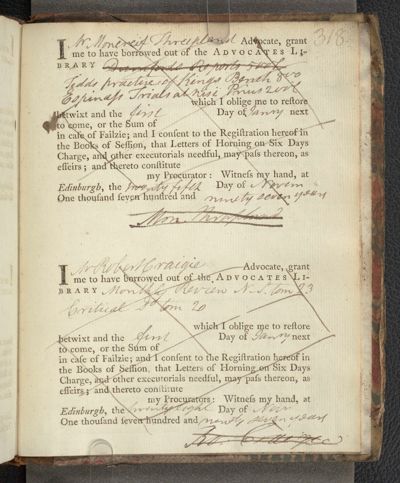 318
I Wr Moncreif Threepland Advocate, grant
me to have borrowed out of the ADVOCATES LI-
BRARY Durnfords Reports
Tidds practice of Kings Bench 8vo
Espinass Trials at Nisi Prius 2 vols
which I oblige me to restore
betwixt and the first Day of Janry next
to come, or the Sum of
in case of Failzie; and I consent to the Registration hereof in
the Books of Session, that Letters of Horning on Six Days
Charge, and other executorials needful, may pass thereon, as
effeirs; and thereto constitute
my Procurator: Witness my hand, at
Edinburgh, the twenty fifth Day of Novem
One thousand seven hundred and ninety seven years
Mon. Threepland
I Mr Robert Craigie Advocate, grant
me to have borrowed out of the ADVOCATES LI-
BRARY Monthly Review N.S. tom 23
Critical Do tom 20
which I oblige me to restore
betwixt and the first Day of Janry next
to come, or the Sum of
in case of Failzie; and I consent to the Registration hereof in
the Books of Session, that Letters of Horning on Six Days
Charge, and other executorials needful, may pass thereon, as
effeirs; and thereto constitute
my Procurators: Witness my hand, at
Edinburgh, the twenty eight Day of Nov
One thousand seven hundred and ninety seven years
Ro. Craigie